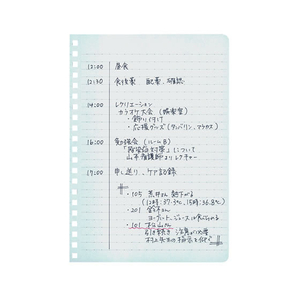 12:00 昼食
12:30 食後薬 配薬、確認
14:00 レクリエーション
カラオケ大会 (娯楽室)
・飾り付け
・応援グッズ (タンバリン、マラカス)
16:00 勉強会 (ルームB)
「感染症対策」について
山本看護師よりレクチャー
17:00 申し送り、ケア記録
・105 荒井さん 熱下がる
(12時:37.5℃、15時:36.8℃)
・201 鈴木さん
ヨーグルト、ジュースは食べられる
・101 杉山さん
引き続き 注意が必要